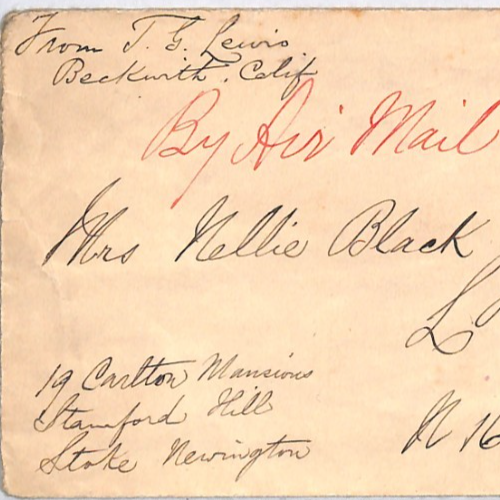 From T. G. Lewis
Beckwith, Calif
By Air Mail
Mrs Nellie Black
L
19 Carlton Mansions
Stamford Hill
Stoke Newington
N 16